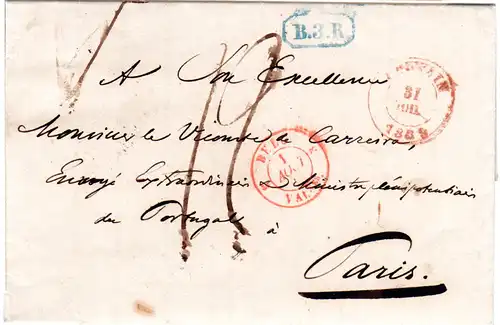 B.3.R
A Son Excellence
31
1839
Monsieur le Vicomte de Carreira,
1
Envoyé Extraordinaire & Ministre plénipotentiaire
du Portugal à
Paris.